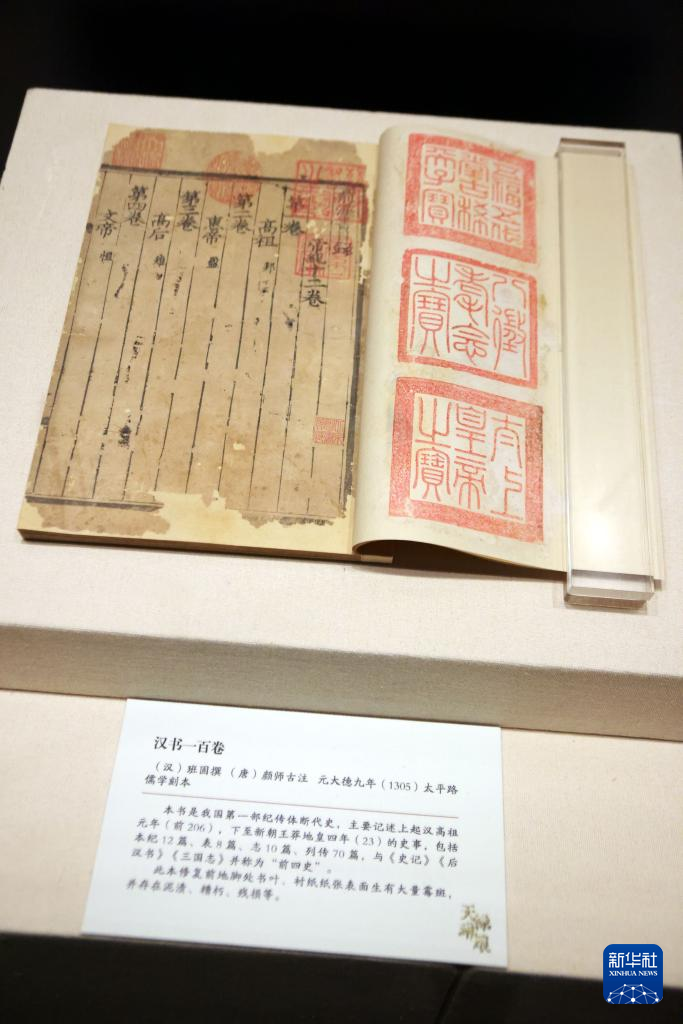 五福五代堂古稀天子寶
八徵耄念之寶
太上皇帝之寶
目録
十二卷
第一卷
高祖 邦
第二卷
惠帝 盈
第三卷
高后 雉
第四卷
文帝 恒
汉书一百卷
（汉）班固撰 （唐）颜师古注 元大德九年（1305）太平路
儒学刻本
本书是我国第一部纪传体断代史，主要记述上起汉高祖
元年（前206），下至新朝王莽地皇四年（23）的史事，包括
本纪12篇、表8篇、志10篇、列传70篇，与《史记》《后
汉书》《三国志》并称为“前四史”。
此本修复前地脚处书叶、衬纸纸张表面生有大量霉斑，
并存在泥渍、糟朽、残损等。
天禄琳琅
新华社
XINHUA NEWS